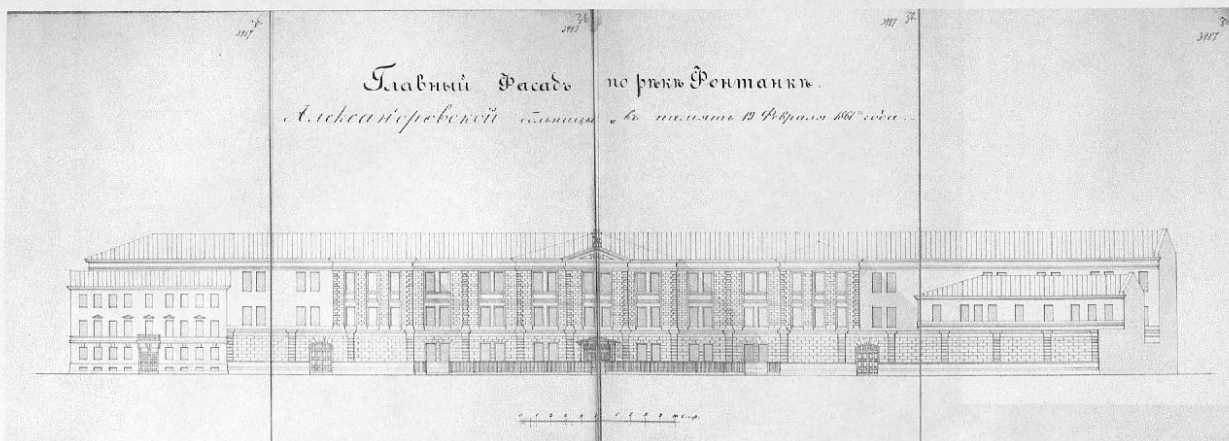 3987 3987 3987 3987
Главный Фасадъ по рѣкѣ Фонтанкѣ.
Александровской больницы „въ память 19 Февраля 1861 года.